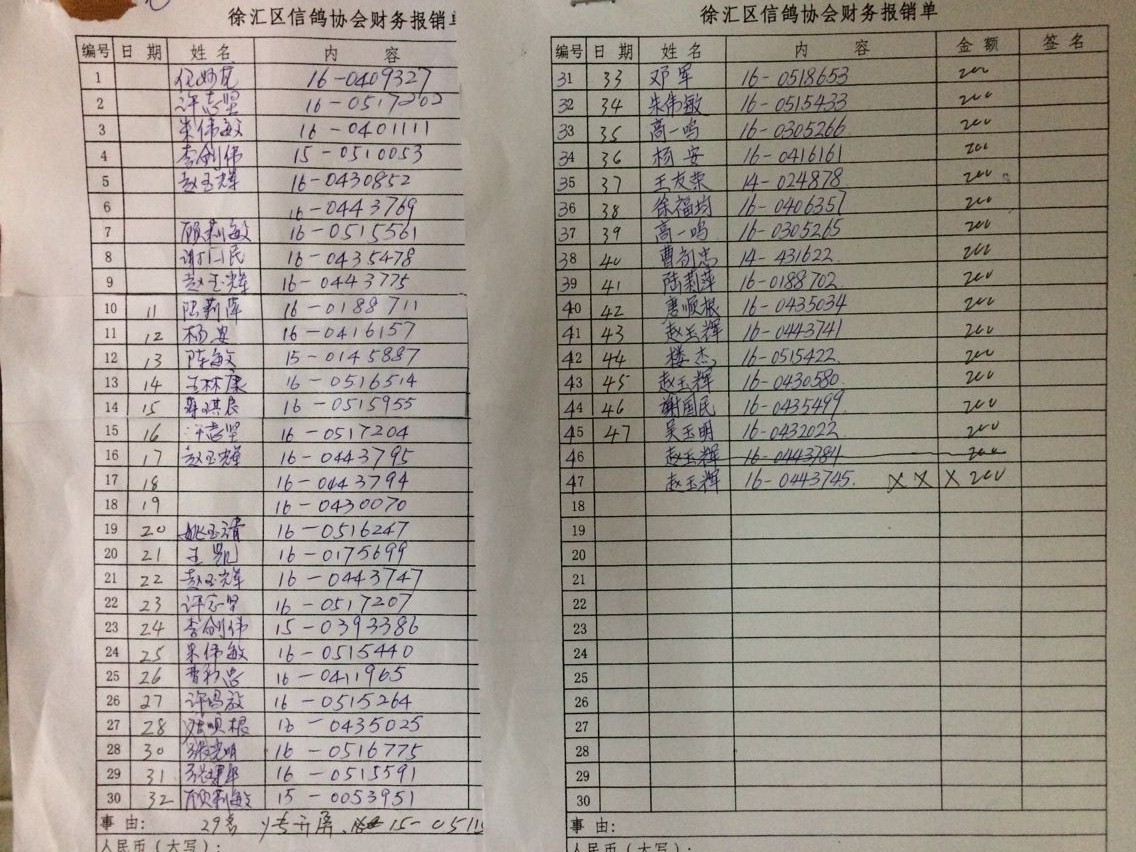 徐汇区信鸽协会财务报销单
编号 日期 姓名 内容
1 16-0409327
2 许志坚 16-0517202
3 朱伟敏 16-0401111
4 李剑伟 15-0510053
5 赵玉辉 16-0430852
6 16-0443769
7 顾莉敏 16-0515561
8 谢国民 16-0435478
9 赵玉辉 16-0443775
10 11 陆莉萍 16-0188711
11 12 杨安 16-0416157
12 13 陈敏 15-0145887
13 14 王林康 16-0516514
14 15 16-0515955
15 16 许志坚 16-0517204
16 17 赵玉辉 16-0443795
17 18 16-0443794
18 19 16-0430070
19 20 姚玉清 16-0516247
20 21 王凯 16-0175699
21 22 赵玉辉 16-0443747
22 23 许志坚 16-0517207
23 24 李剑伟 15-0393386
24 25 朱伟敏 16-0515440
25 26 曹初忠 16-0411965
26 27 16-0515264
27 28 唐顺根 16-0435025
28 30 张克明 16-0516775
29 31 16-0515591
30 32 顾莉敏 15-0053951
事由: 29名 15-0511
人民币(大写):
徐汇区信鸽协会财务报销单
编号 日期 姓名 内容 金额 签名
31 33 邓军 16-0518653 200
32 34 朱伟敏 16-0515433 200
33 35 高一鸣 16-0305266 200
34 36 杨安 16-0416161 200
35 37 王友荣 14-024878 200
36 38 徐福均 16-0406357 200
37 39 高一鸣 16-0305265 200
38 40 曹初忠 14-431622 200
39 41 陆莉萍 16-0188702 200
40 42 唐顺根 16-0435034 200
41 43 赵玉辉 16-0443741 200
42 44 楼杰 16-0515422 200
43 45 赵玉辉 16-0430580 200
44 46 谢国民 16-0435499 200
45 47 吴玉明 16-0432022 200
46 赵玉辉 16-0443784 200
47 赵玉辉 16-0443745. X X X 200
18
19
20
21
22
23
24
25
26
27
28
29
30
事由:
人民币(大写):